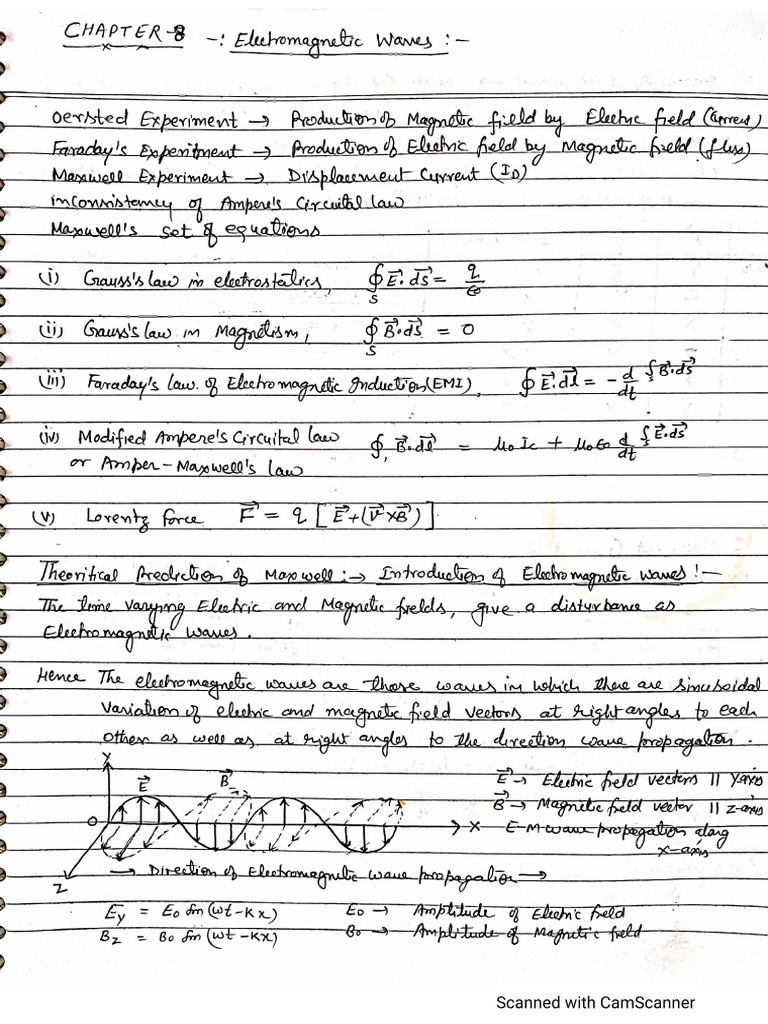 CHAPTER-8 -: Electromagnetic Waves :-
Oersted Experiment → Production of Magnetic field by Electric field (Current)
Faraday's Experitment → Production of Electric field by Magnetic field (flux)
Maxwell Experiment → Displacement Current (I_D)
inconsistancy of Ampere's Circuital law
Maxwell's set of equations
(i) Gauss's law in electrostatics, ∮_S E⃗.ds⃗ = q/ϵ0
(ii) Gauss's law in Magnetism, ∮_S B⃗.ds⃗ = 0
(iii) Faraday's law. of Electromagnetic Induction (EMI), ∮ E⃗.dl⃗ = - d/dt ∫_S B⃗.ds⃗
(iv) Modified Ampere's Circuital law ∮ B⃗.dl⃗ = μ0 Ic + μ0 ϵ0 d/dt ∫_S E⃗.ds⃗
or Amper-Maxwell's law
(v) Lorentz force F⃗ = q [E⃗+(V⃗×B⃗)]
Theoritical Prediction of Maxwell :→ Introduction of Electromagnetic waves !-
The time varying Electric and Magnetic fields, give a disturbance as
Electromagnetic waves.
Hence The electromagnetic waves are those waves in which there are sinusoidal
variation of electric and magnetic field vectors at right angles to each
other as well as at right angles to the direction wave propagation.
Y E⃗ B⃗ E⃗ → Electric field vectors || Y-axis
B⃗ → Magnetic field vector || z-axis
O X E-M wave propagation along
x-axis
Z → Direction of Electromagnetic wave propagation →
Ey = E0 sin(ωt-Kx) E0 → Amplitude of Electric field
Bz = B0 sin(ωt-Kx) B0 → Amplitude of Magnetic field
Scanned with CamScanner